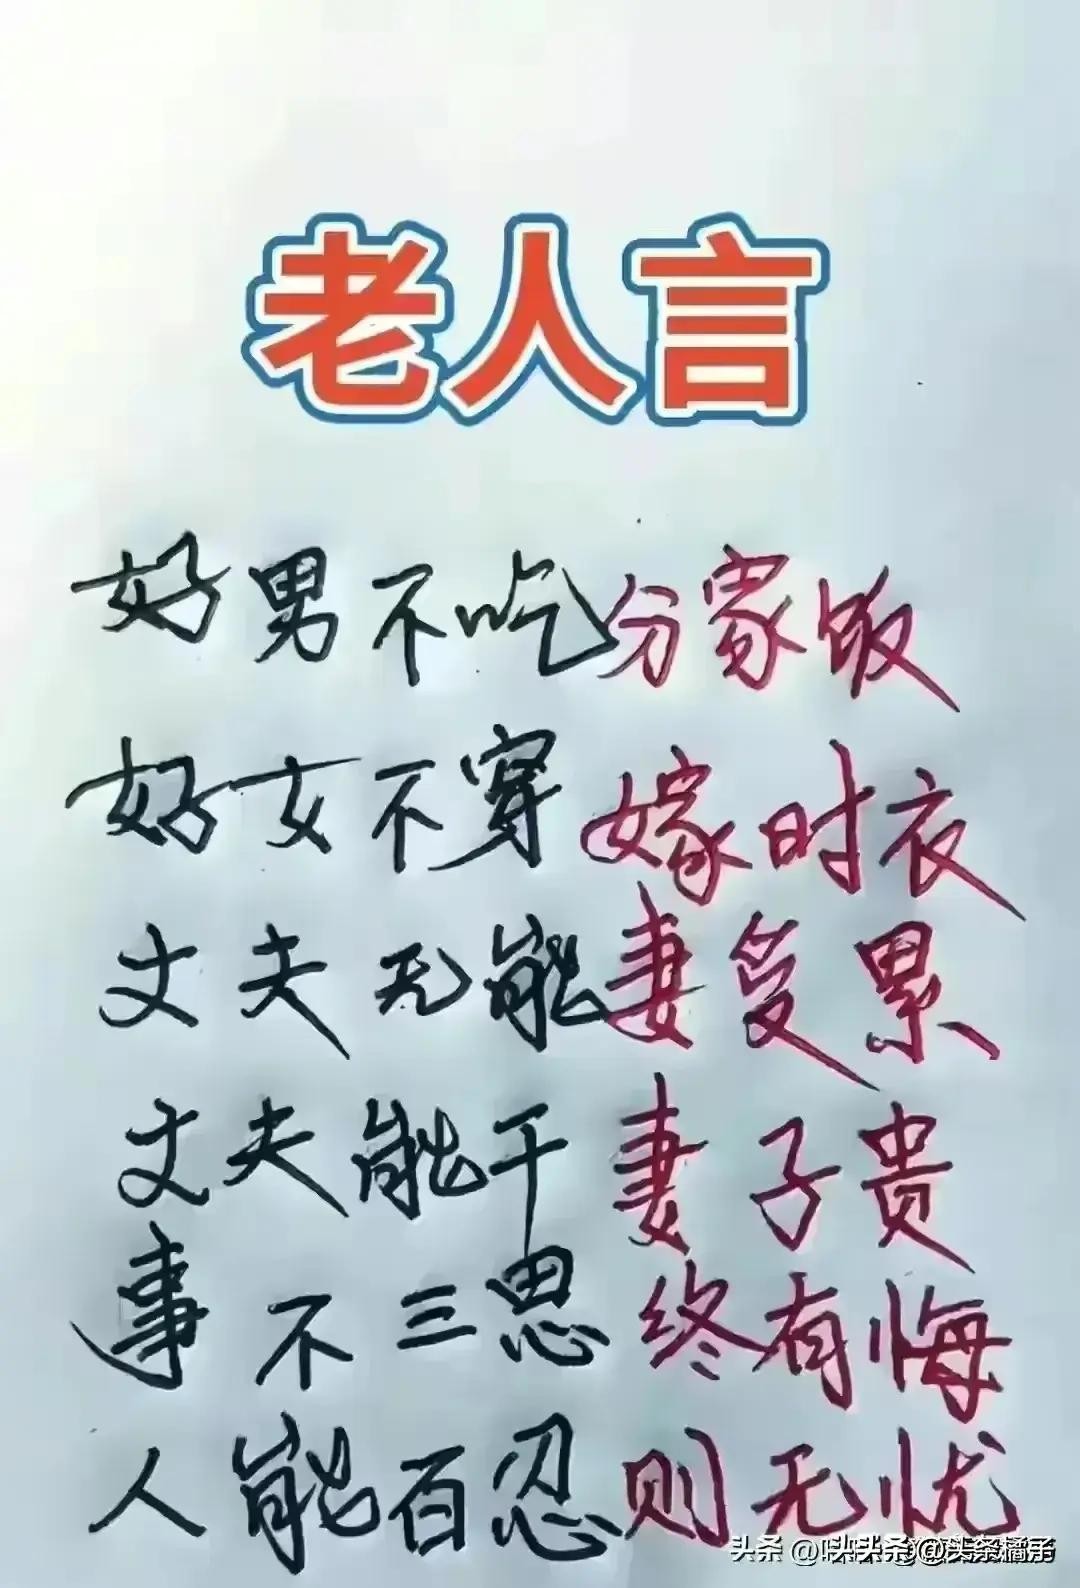 老人言
好男不吃分家饭
好女不穿嫁时衣
丈夫无能妻受累
丈夫能干妻子贵
事不三思终有悔
人能百忍则无忧
头条 @头条橘子